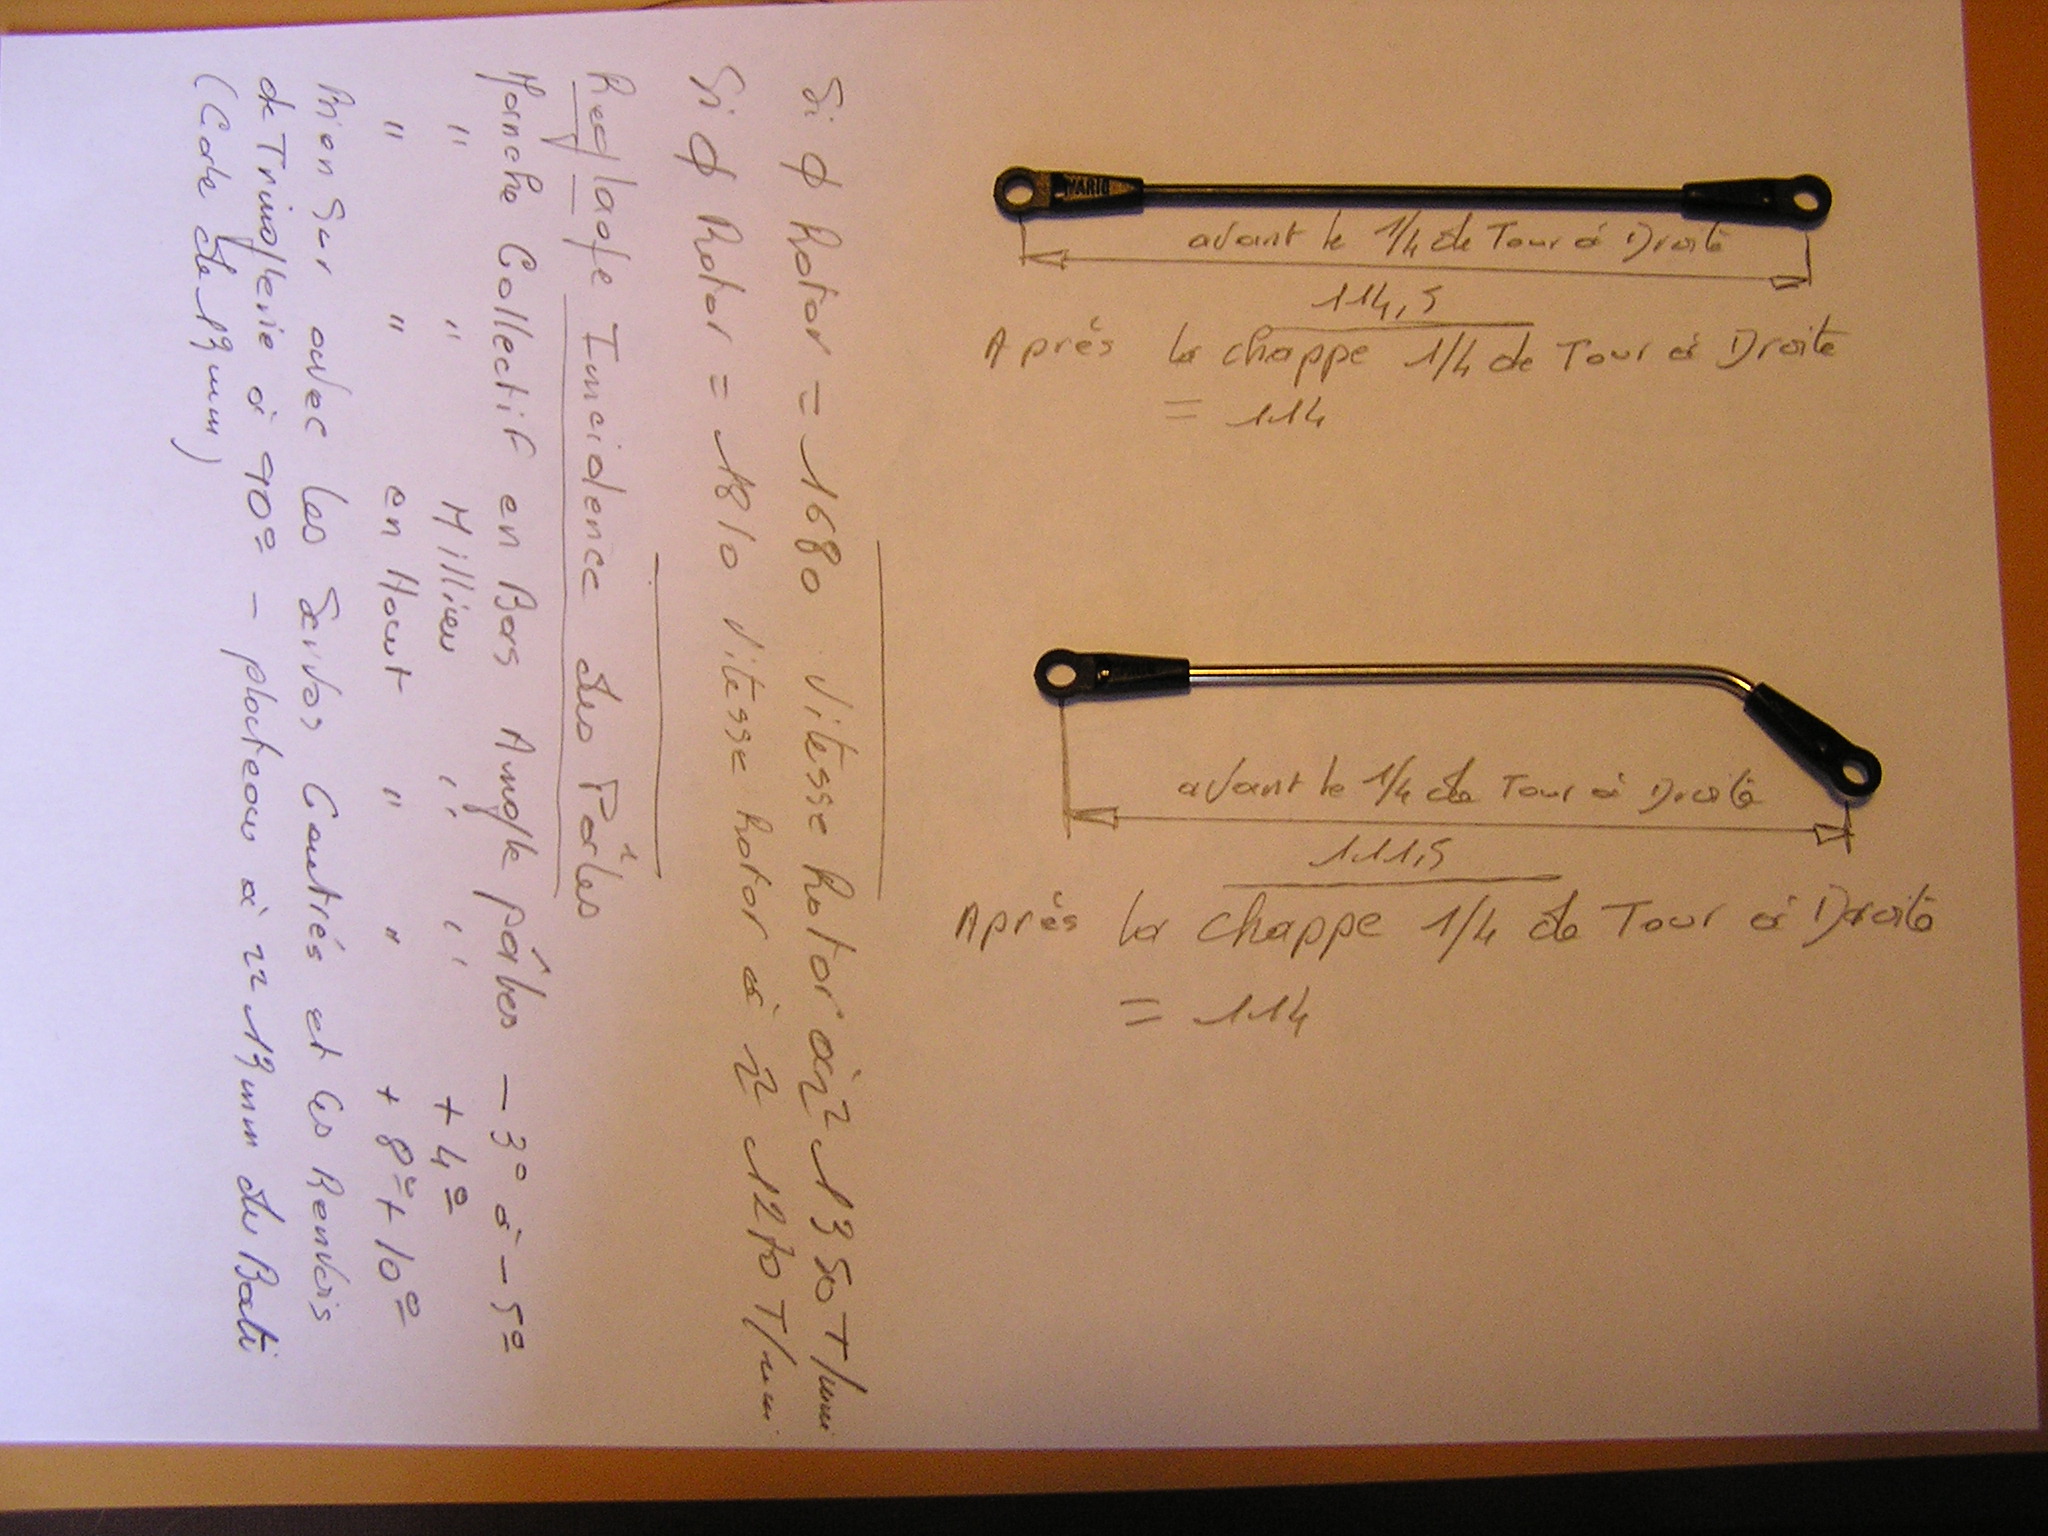 VARIO
avant le 1/4 de Tour à Droite
114,5
Après la chappe 1/4 de Tour à Droite
= 114
avant le 1/4 de Tour à Droite
111,5
Après la chappe 1/4 de Tour à Droite
= 114
Si ϕ Rotor = 1680 Vitesse Rotor à 1350 T/mn
Si ϕ Rotor = 1810 Vitesse Rotor à 1270 T/mn
Reglage Incidence des Pâles
Manche Collectif en Bas Angle pâles - 3° à - 5°
" " Millieu " " + 4º
" " en Haut " " + 8º + 10º
Bien Sur avec les Servos Centrés et les Renvois
de Tringlerie à 90º - plateau à 19 mm du Bati
(Cale de 19 mm)